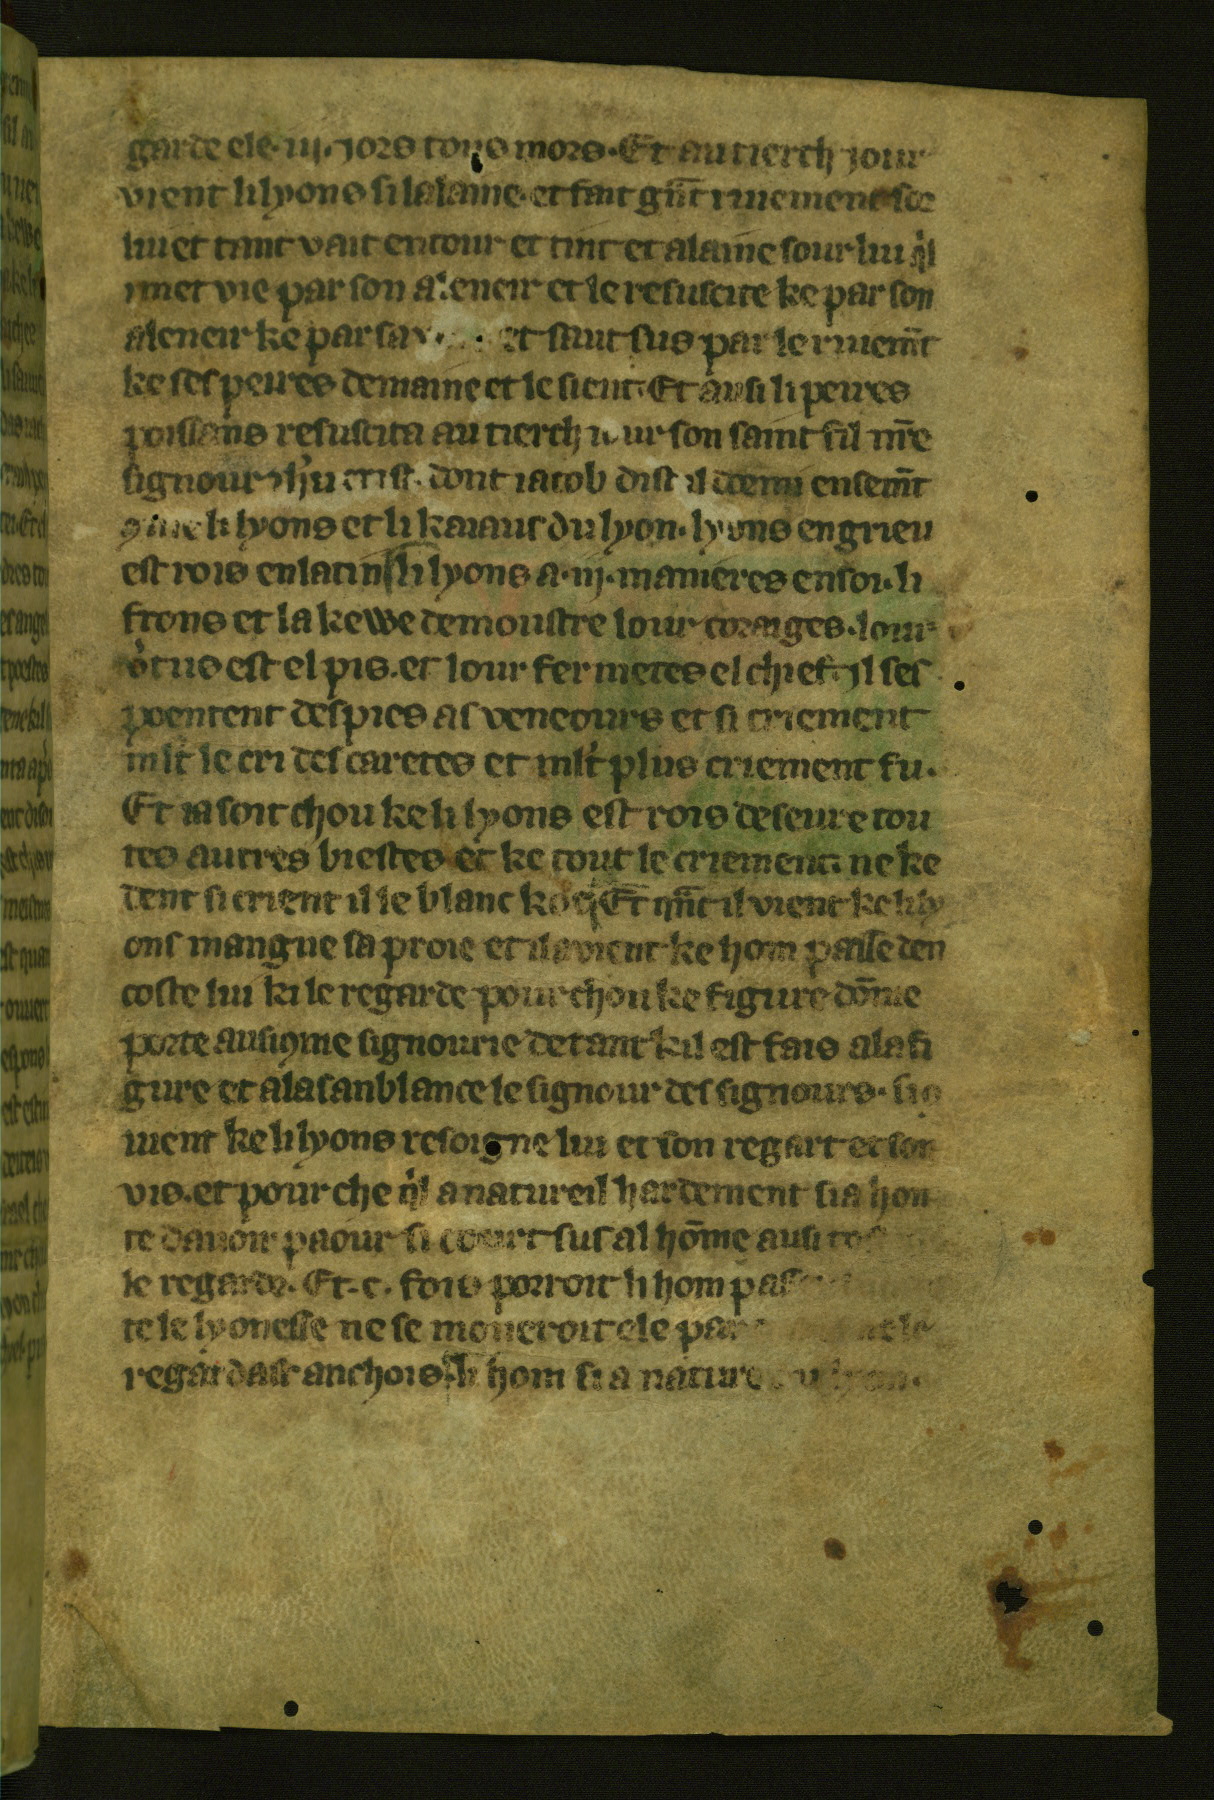 garde ele·iij·jors tous mors·Et au tierch jour
vient li lyons si lalaine·et fait gñt ruiement sor
lui et tant vait entour et tint et alaine sour lui ql
i met vie par son aleneir et le resuscite ke par son
aleneir ke par sa et saut sus par le ruiemt̄
ke ses peires demaine et le sieut·Et ausi li peires
poissans resuscita au tierch iour son saint fil nr̄e
signour ihu crist· dont iacob dist il dormi ensemt̄
9me li lyons et li kaiaus du lyon·lyons en grieu
est rois en latin li lyons a·iij·manieres en soi·li
frons et la kewe demoustre lour corages·lour
v̓tus est el pis·et lour fermetes el chief·il ses
poentent des pies as veneours et si criement
mlt̄ le cri des caretes et mlt̄ plus criement fu·
Et ia soit chou ke li lyons est rois deseure tou
tes autres biestes et ke tout le criement ne ke
dent si crient il le blanc koc Et qñt il vient ke li ly
ons mangue sa proie et il avient ke hom passe den
coste lui ki le regarde pour chou ke figure dōme
porte ausi 9me signourie de tant kil est fais a la fi
gure et a la sanblance le signour des signours· si 9
uient ke li lyons resoigne lui et son regart et son
vis·et pour che ql a natureil hardement si a hon
te dauoir paour si court sus al hōme ausi tos
le regarde·Et·c·fois porroit li hom
te le lyonesse ne se moueroit ele le
regardast anchois·li hom si a nature